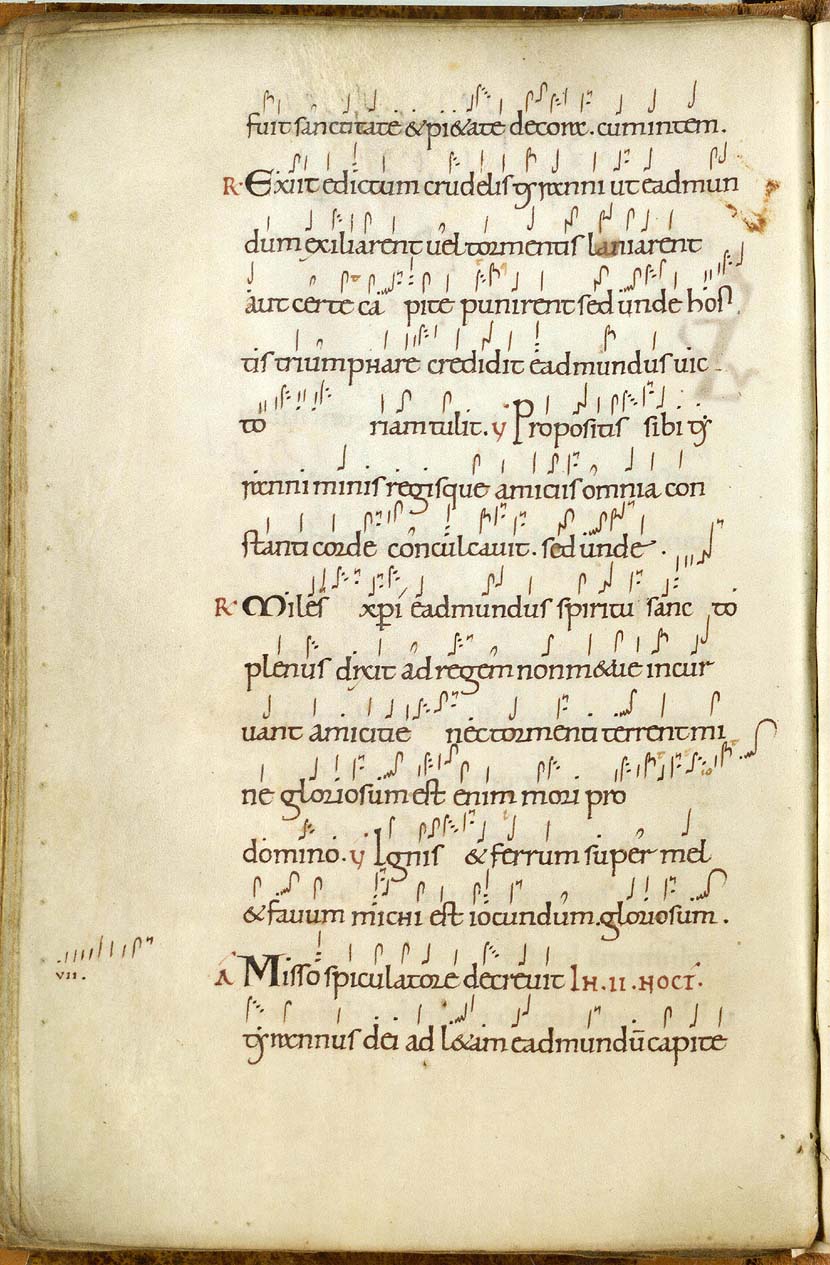 fuit sanctitate & pi&ate decore. cum intem.
R Exiit edictum crudelis tyranni ut eadmun
dum exiliarent uel tormentis laniarent
aut certe ca pite punirent sed unde hos
tis triumphare credidit eadmundus uic
to riam tulit. V Propositis sibi ty
ranni minis regisque amicus omnia con
stanti corde conculcauit. sed unde.
R Miles xpi eadmundus spiritu sanc to
plenus dixit ad regem non m& ue incur
uant amicitie nec tormenti terrent mi
ne gloriosum est enim mori pro
domino. V Ignis & ferrum super mel
& fauum michi est iocundum. gloriosum.
VII.
A Misso spiculatore decreuit IN .II. NOCT.
tyrannus dei ad l&am eadmundū capite